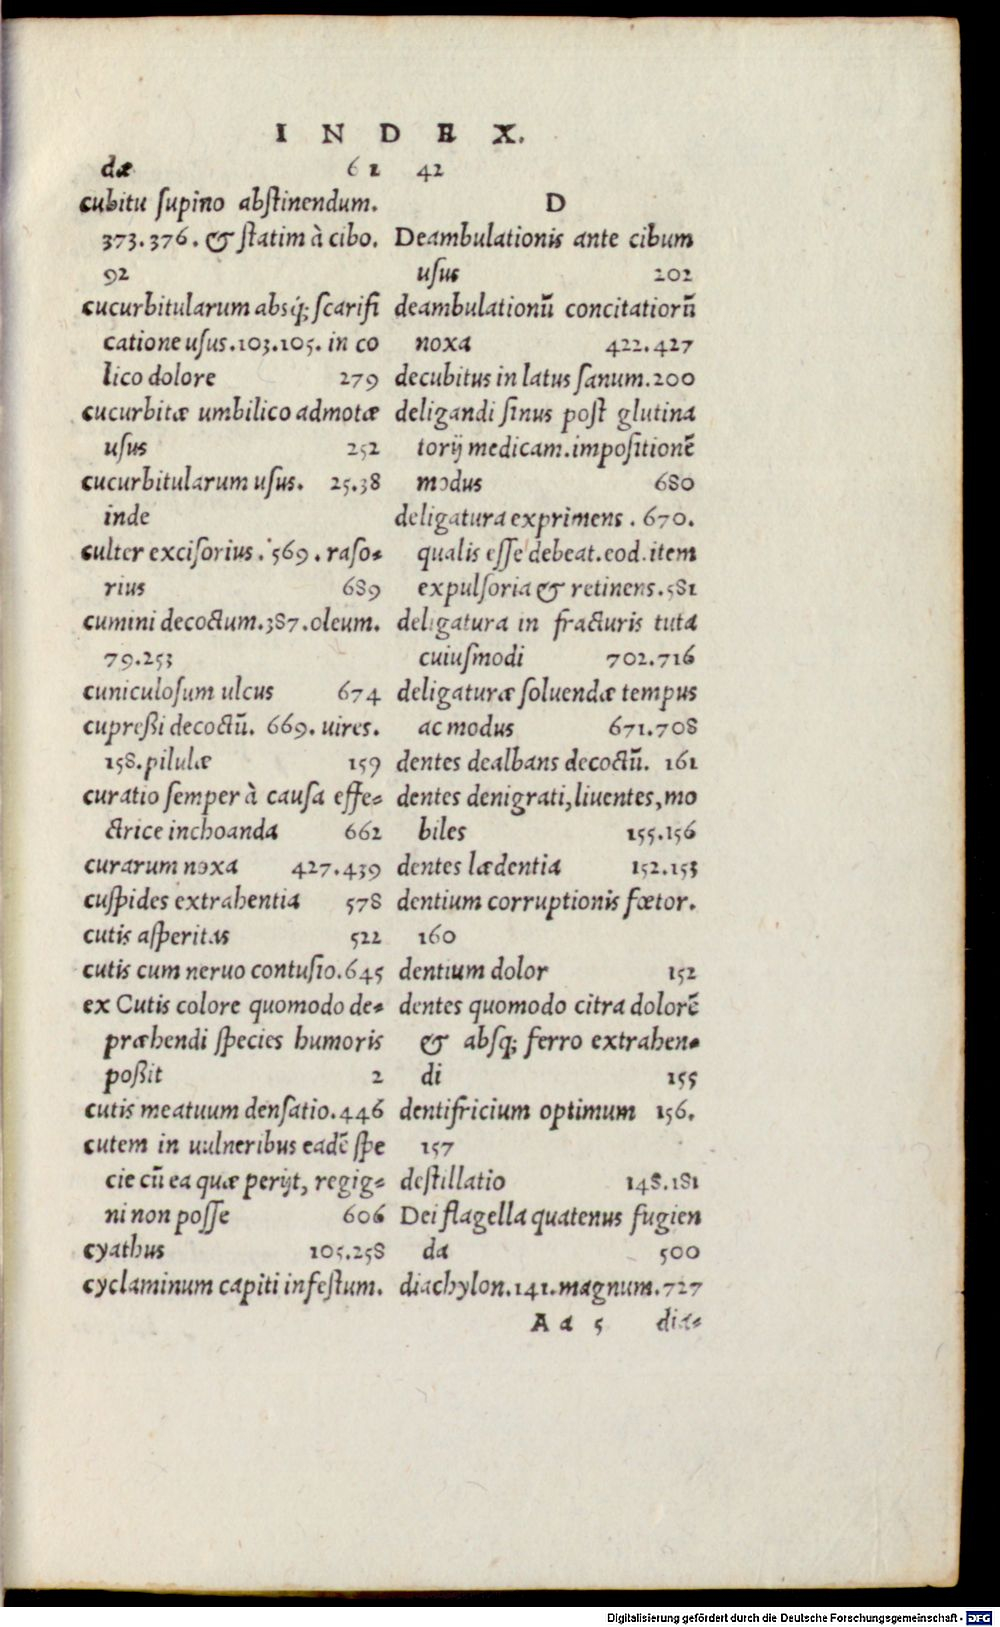 INDEX.
dæ 62
cubitu ſupino abſtinendum.
373.376. & ſtatim à cibo.
92
cucurbitularum absq́; ſcarifi
catione uſus.103.105. in co
lico dolore 279
cucurbitæ umbilico admotæ
uſus 252
cucurbitularum uſus. 25.38
inde
culter exciſorius. 569. raſo-
rius 689
cumini decoctum.387.oleum.
79.253
cuniculoſum ulcus 674
cupreßi decoctū. 669. uires.
158.pilulæ 159
curatio ſemper à cauſa effe-
ctrice inchoanda 662
curarum noxa 427.439
cuſpides extrahentia 578
cutis aſperitas 522
cutis cum neruo contuſio.645
ex Cutis colore quomodo de-
præhendi ſpecies humoris
poßit 2
cutis meatuum denſatio.446
cutem in uulneribus eadē ſpe
cie cū ea quæ perijt, regig-
ni non poſſe 606
cyathus 105.258
cyclaminum capiti infeſtum.
42
D
Deambulationis ante cibum
uſus 202
deambulationū concitatiorū
noxa 422.427
decubitus in latus ſanum.200
deligandi ſinus poſt glutina
torij medicam.impoſitionē
modus 680
deligatura exprimens. 670.
qualis eſſe debeat.eod.item
expulſoria & retinens.581
deligatura in fracturis tuta
cuiuſmodi 702.716
deligaturæ ſoluendæ tempus
ac modus 671.708
dentes dealbans decoctū. 161
dentes denigrati,liuentes,mo
biles 155.156
dentes lædentia 152.153
dentium corruptionis fœtor.
160
dentium dolor 152
dentes quomodo citra dolorē
& abſq; ferro extrahen-
di 155
dentifricium optimum 156.
157
deſtillatio 148.181
Dei flagella quatenus fugien
da 500
diachylon.141.magnum.727
Aa 5 dia-
Digitalisierung gefördert durch die Deutsche Forschungsgemeinschaft - DFG